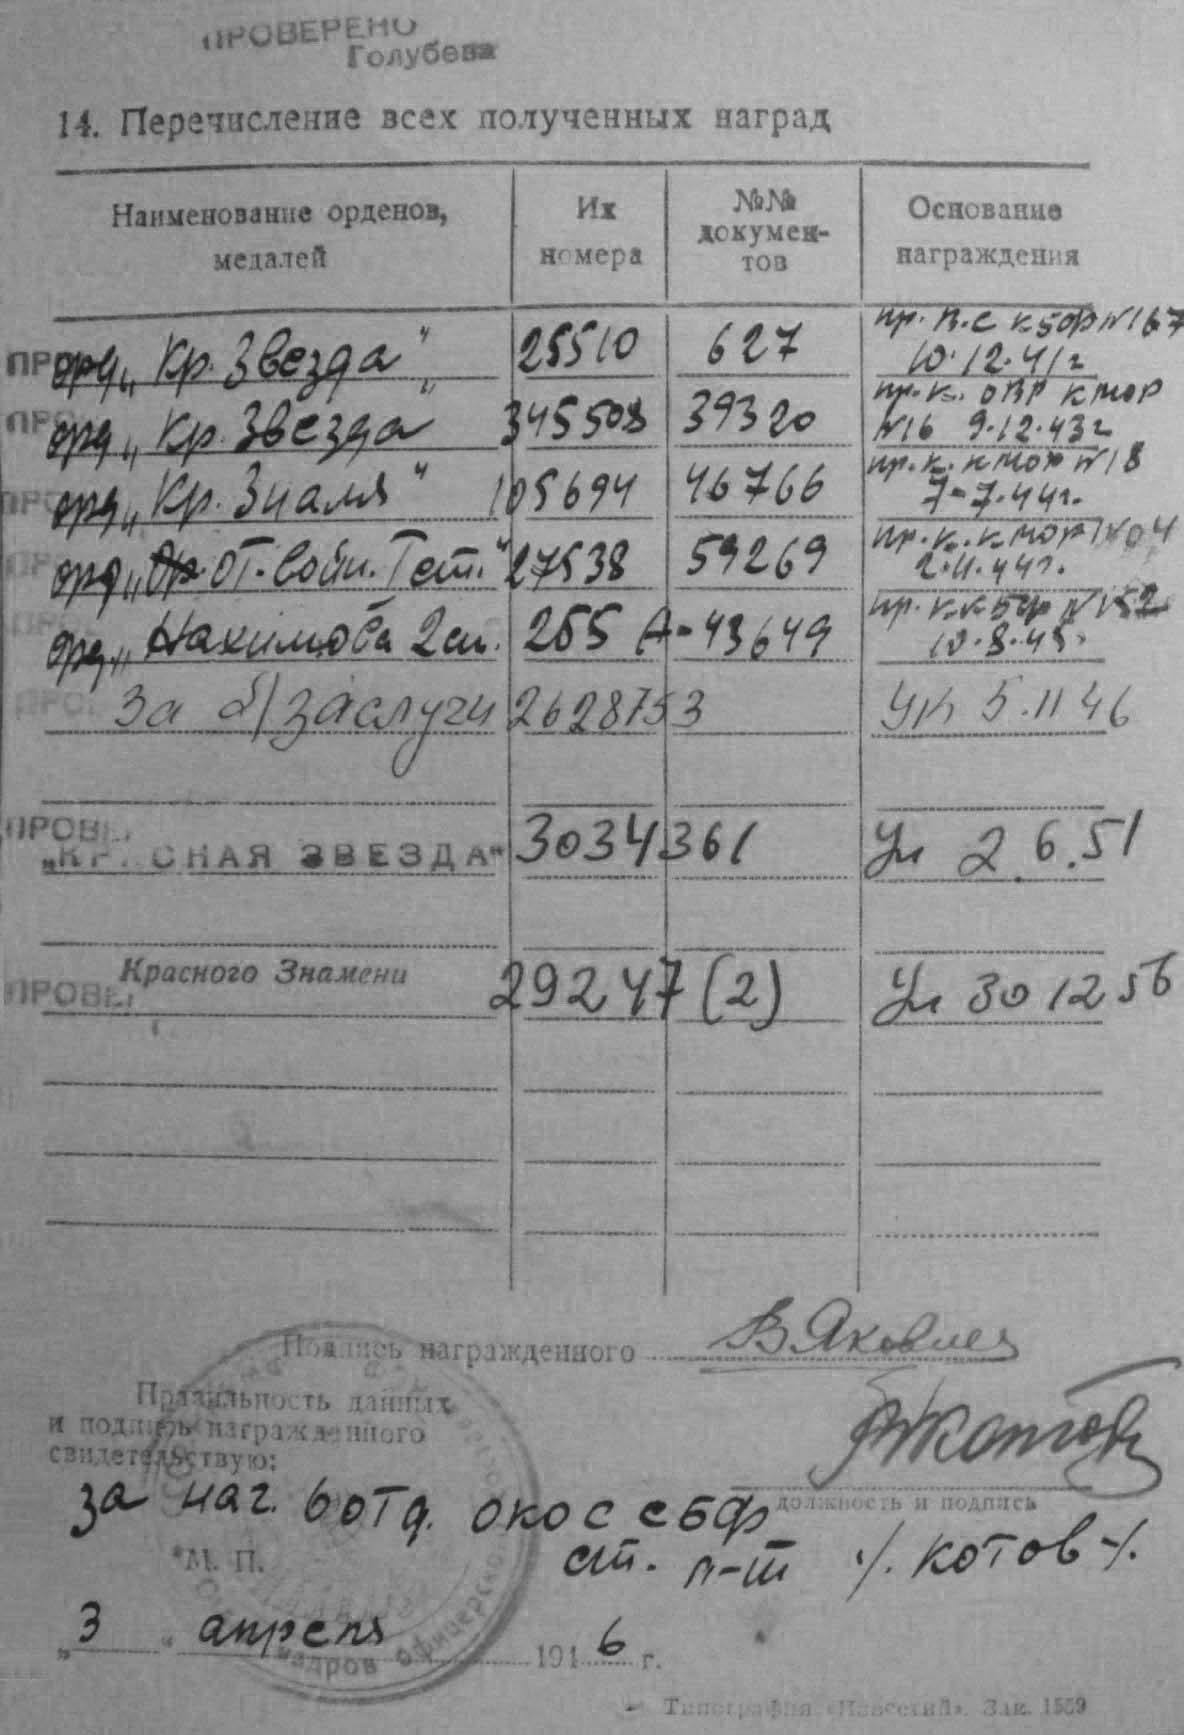 ПРОВЕРЕНО
Голубева
14. Перечисление всех полученных наград
Наименование орденов, медалей
Их номера
№№ документов
Основание награждения
орд. „Кр. Звезда" 25510 627 пр. В.С КБФ №167
10.12.41г
орд. „Кр. Звезда" 345508 39320 пр. к. ОВР КМОР
№16 9.12.43г
орд. „Кр. Знамя" 105694 46766 пр. к. КМОР №18
7-7.44г.
орд. „От. войн. 1 ст." 27538 59269 пр. к. КМОР №04
2.11.44г.
орд. „Нахимова 2 ст. 255 А-43649 пр. к КБФ №52
10.8.45г
За б/заслуги 2628753 УК 5.11 46
ПРОВЕ
„КРАСНАЯ ЗВЕЗДА" 3034361 Ук 2.6.51
Красного Знамени 29247 (2) Ук 30 12 56
ПРОВЕ
Подпись награжденного В Яковлев
Правильность данных
и подпись награжденного
свидетельствую:
Котов
должность и подпись
за нач. 6 отд. ОКОС СБФ
М. П. ст. л-т /. Котов /.
„3" апреля 1946 г.
кадров офицерско
Типография «Известий». Зак. 1569